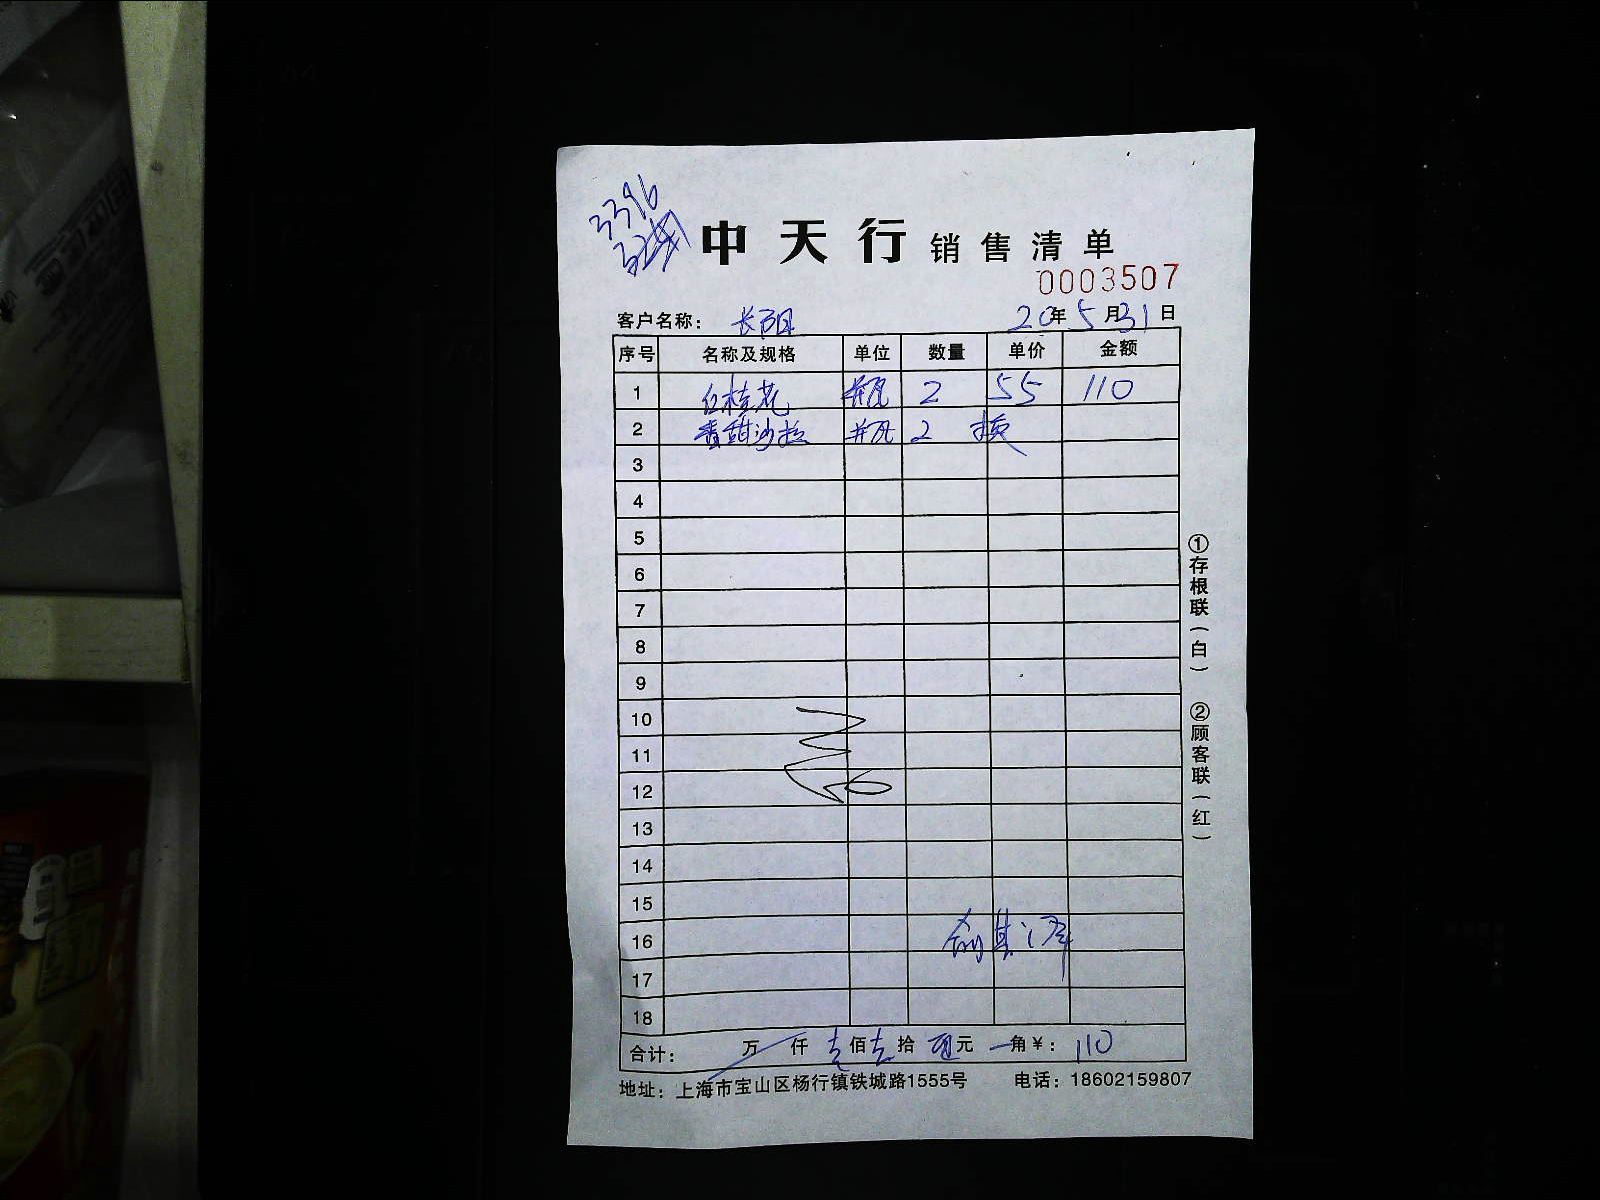 3396
中天行 销售清单
0003507
客户名称： 长阳 20年5月31日
序号 名称及规格 单位 数量 单价 金额
1 红桂花 瓶 2 55 110
2 香甜沙拉 瓶 2 换
3
4
5
6
7
8
9
10
11
12
13
14
15
16
17
18
合计： 万 仟 壹佰壹拾零元 角¥：110
地址：上海市宝山区杨行镇铁城路1555号 电话：18602159807
①存根联（白） ②顾客联（红）